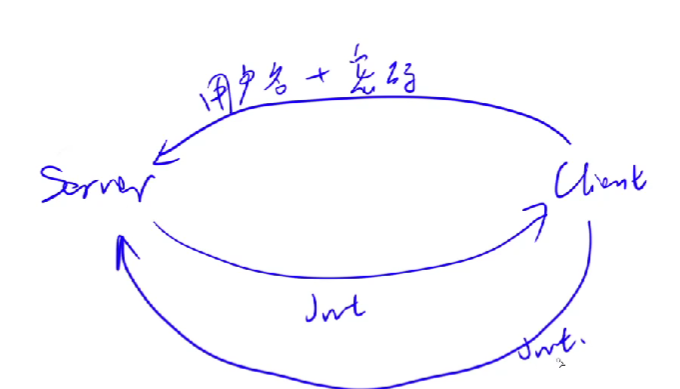 用户名 + 密码
Server
Client
Jwt
Jwt.